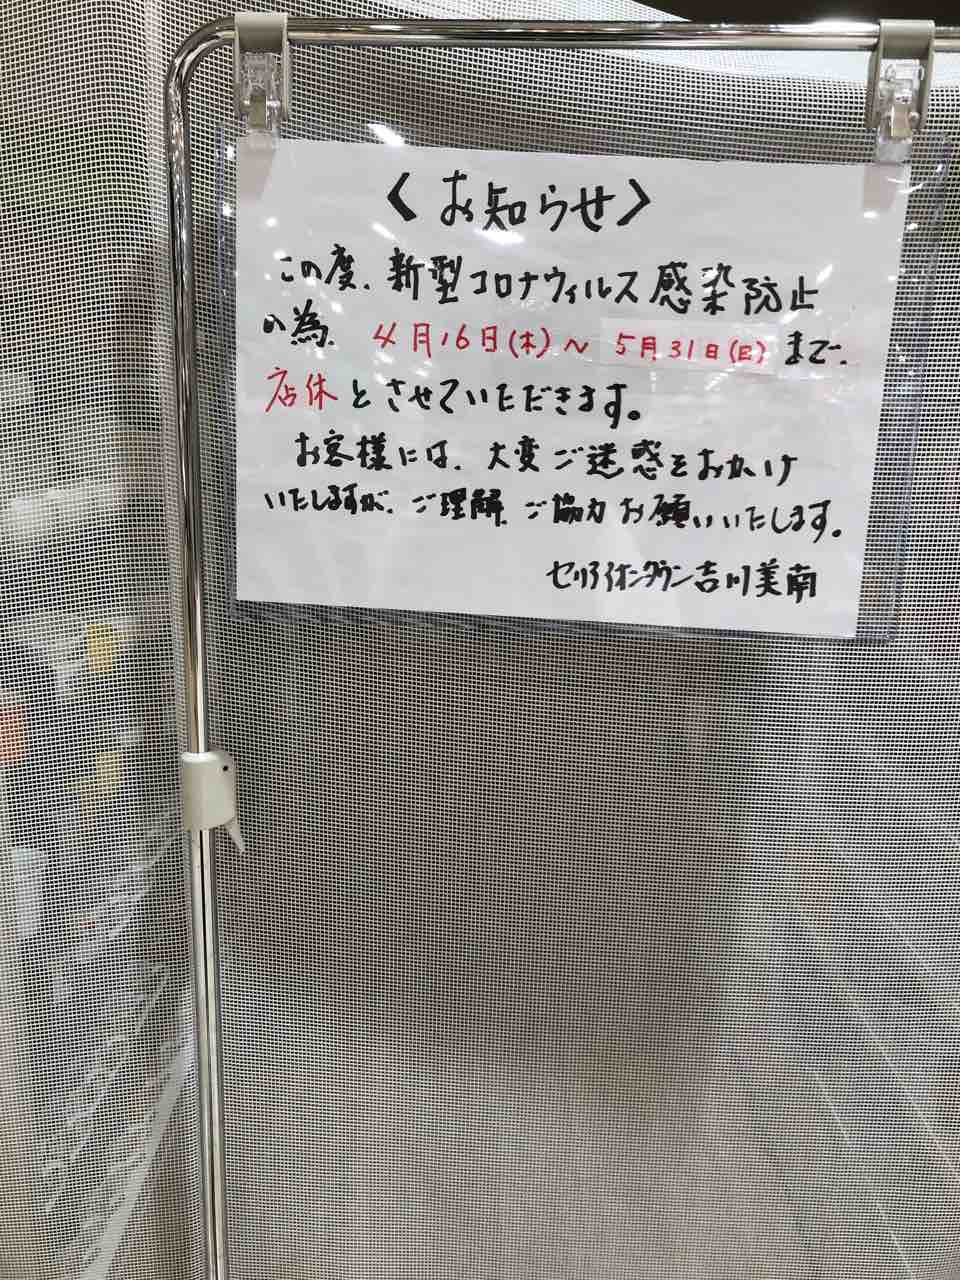 〈お知らせ〉
この度、新型コロナウィルス感染防止
の為、4月16日(木)～5月31日(日)まで、
店休とさせていただきます。
お客様には、大変ご迷惑をおかけ
いたしますが、ご理解、ご協力お願いいたします。
セリアイオンタウン吉川美南